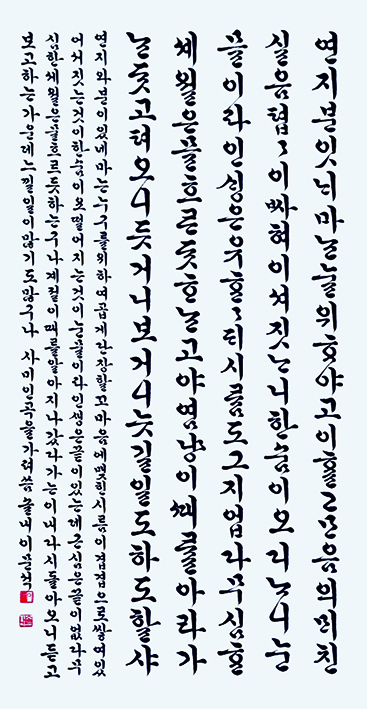 연지분잇ᄂᆡ마ᄂᆞᆫ눌위ᄒᆞ야고이ᄒᆞᆯ고ᄆᆞ음의ᄆᆡ친
실음텹텹이ᄡᅡ혀이셔짓ᄂᆞ니한숨이오디ᄂᆞ니눈
믈이라인ᄉᆡᆼ은유ᄒᆞᆫᄒᆞᆫᄃᆡ시름도그지업다무심ᄒᆞᆫ
셰월은믈흐ᄅᆞᄃᆞᆺᄒᆞᄂᆞᆫ고야염냥이ᄣᅢᄅᆞᆯ아라가
ᄂᆞᆫᄃᆞᆺ고텨오니듯거니보거니늣길일도하도할샤
연지와분이있네마는누구를위하여곱게단장할꼬마음에맺힌시름이겹겹으로쌓여있
어서짓는것이한숨이오떨어지는것이눈물이라인생은끝이있는데근심은끝이없다무
심한세월은물흐르듯하는구나계절이때를알아지나갔다가는이내다시돌아오니듣고
보고하는가운데느낄일이많기도많구나 사미인곡을가려씀